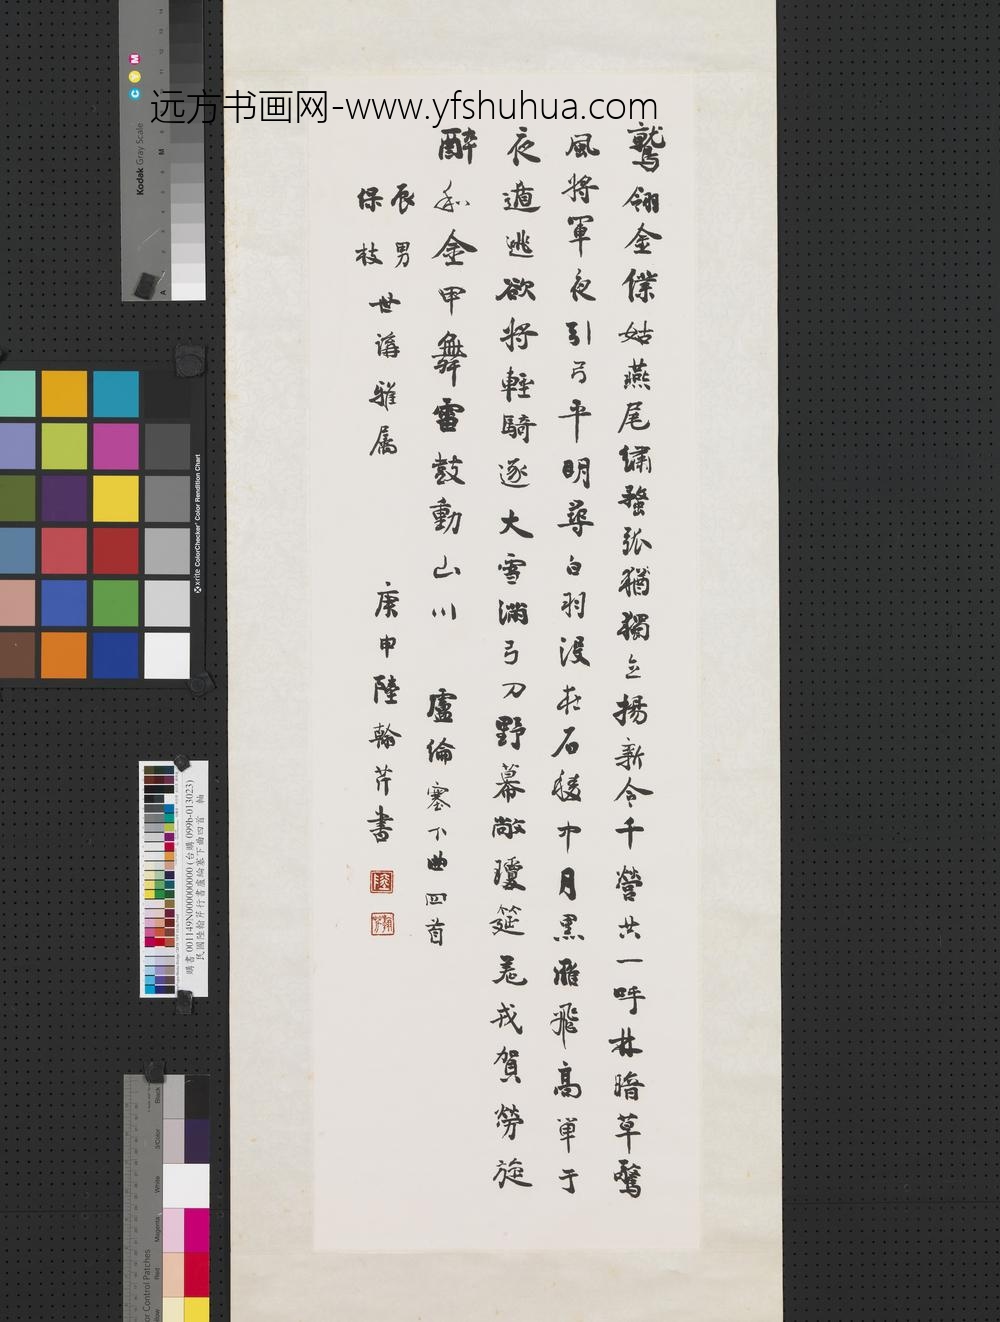 远方书画网-www.yfshuhua.com
鷲翎金僕姑燕尾繡蝥弧猶獨立揚新令千營共一呼林暗草驚
風將軍夜引弓平明尋白羽没在石稜中月黑雁飛高單于
夜遁逃欲將輕騎逐大雪滿弓刀野幕敞瓊筵羌戎賀勞旋
醉和金甲舞雷鼓動山川 盧綸塞下曲四首
辰男
保枝
世講雅属
庚申陸翰芹書
Kodak Gray Scale
C Y M
M
A
x-rite ColorChecker Color Rendition Chart
購書001149N000000000 (台購 099b-013023)
民國陸翰芹行書盧綸塞下曲四首 軸
Black
3/Color
White
Magenta
Red
Yellow
or Control Patches